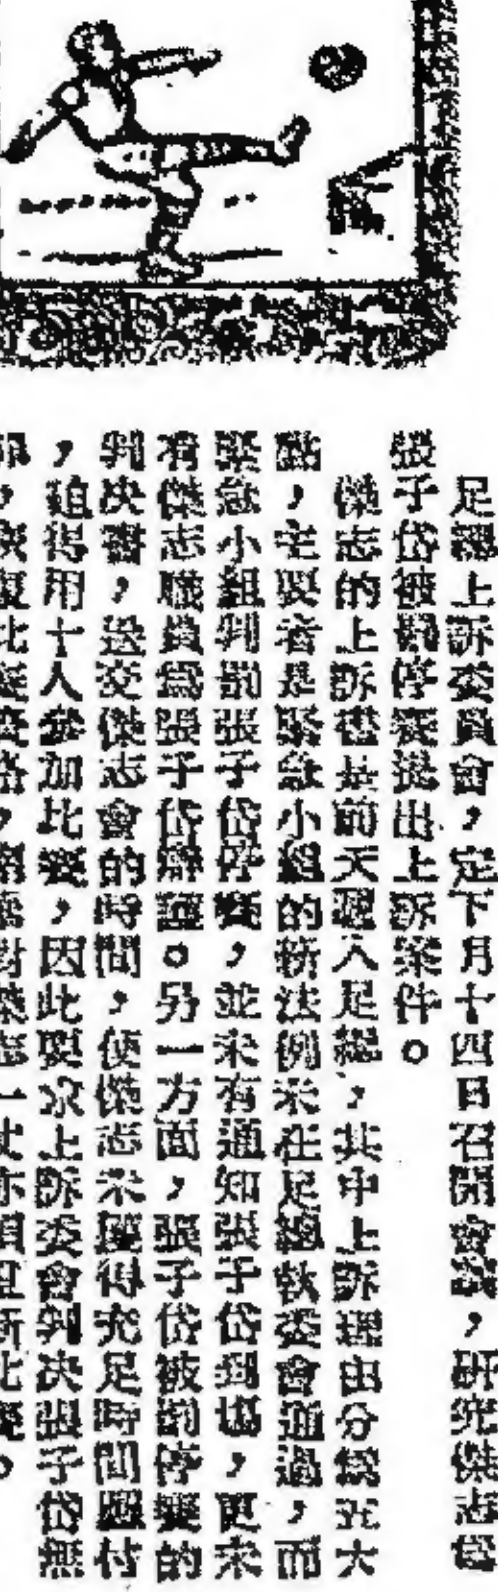 足總上訴委員會，定下月十四日召開會議，研究傑志為
張子岱被罰停賽提出上訴案件。
傑志的上訴書是前天遞入足總，其中上訴理由分為五大
點，主要者是緊急小組的新法例未在足總執委會通過，而
緊急小組判罰張子岱停賽，並未有通知張子岱到塲，更未
有傑志職員為張子岱辯護。另一方面，張子岱被罰停賽的
判决書，送交傑志會的時間，使傑志未獲得充足時間應付
，迫得用十人參加比賽，因此要求上訴委會判决張子岱無
，恢復比賽資格，對傑志一仗亦須重新比賽。